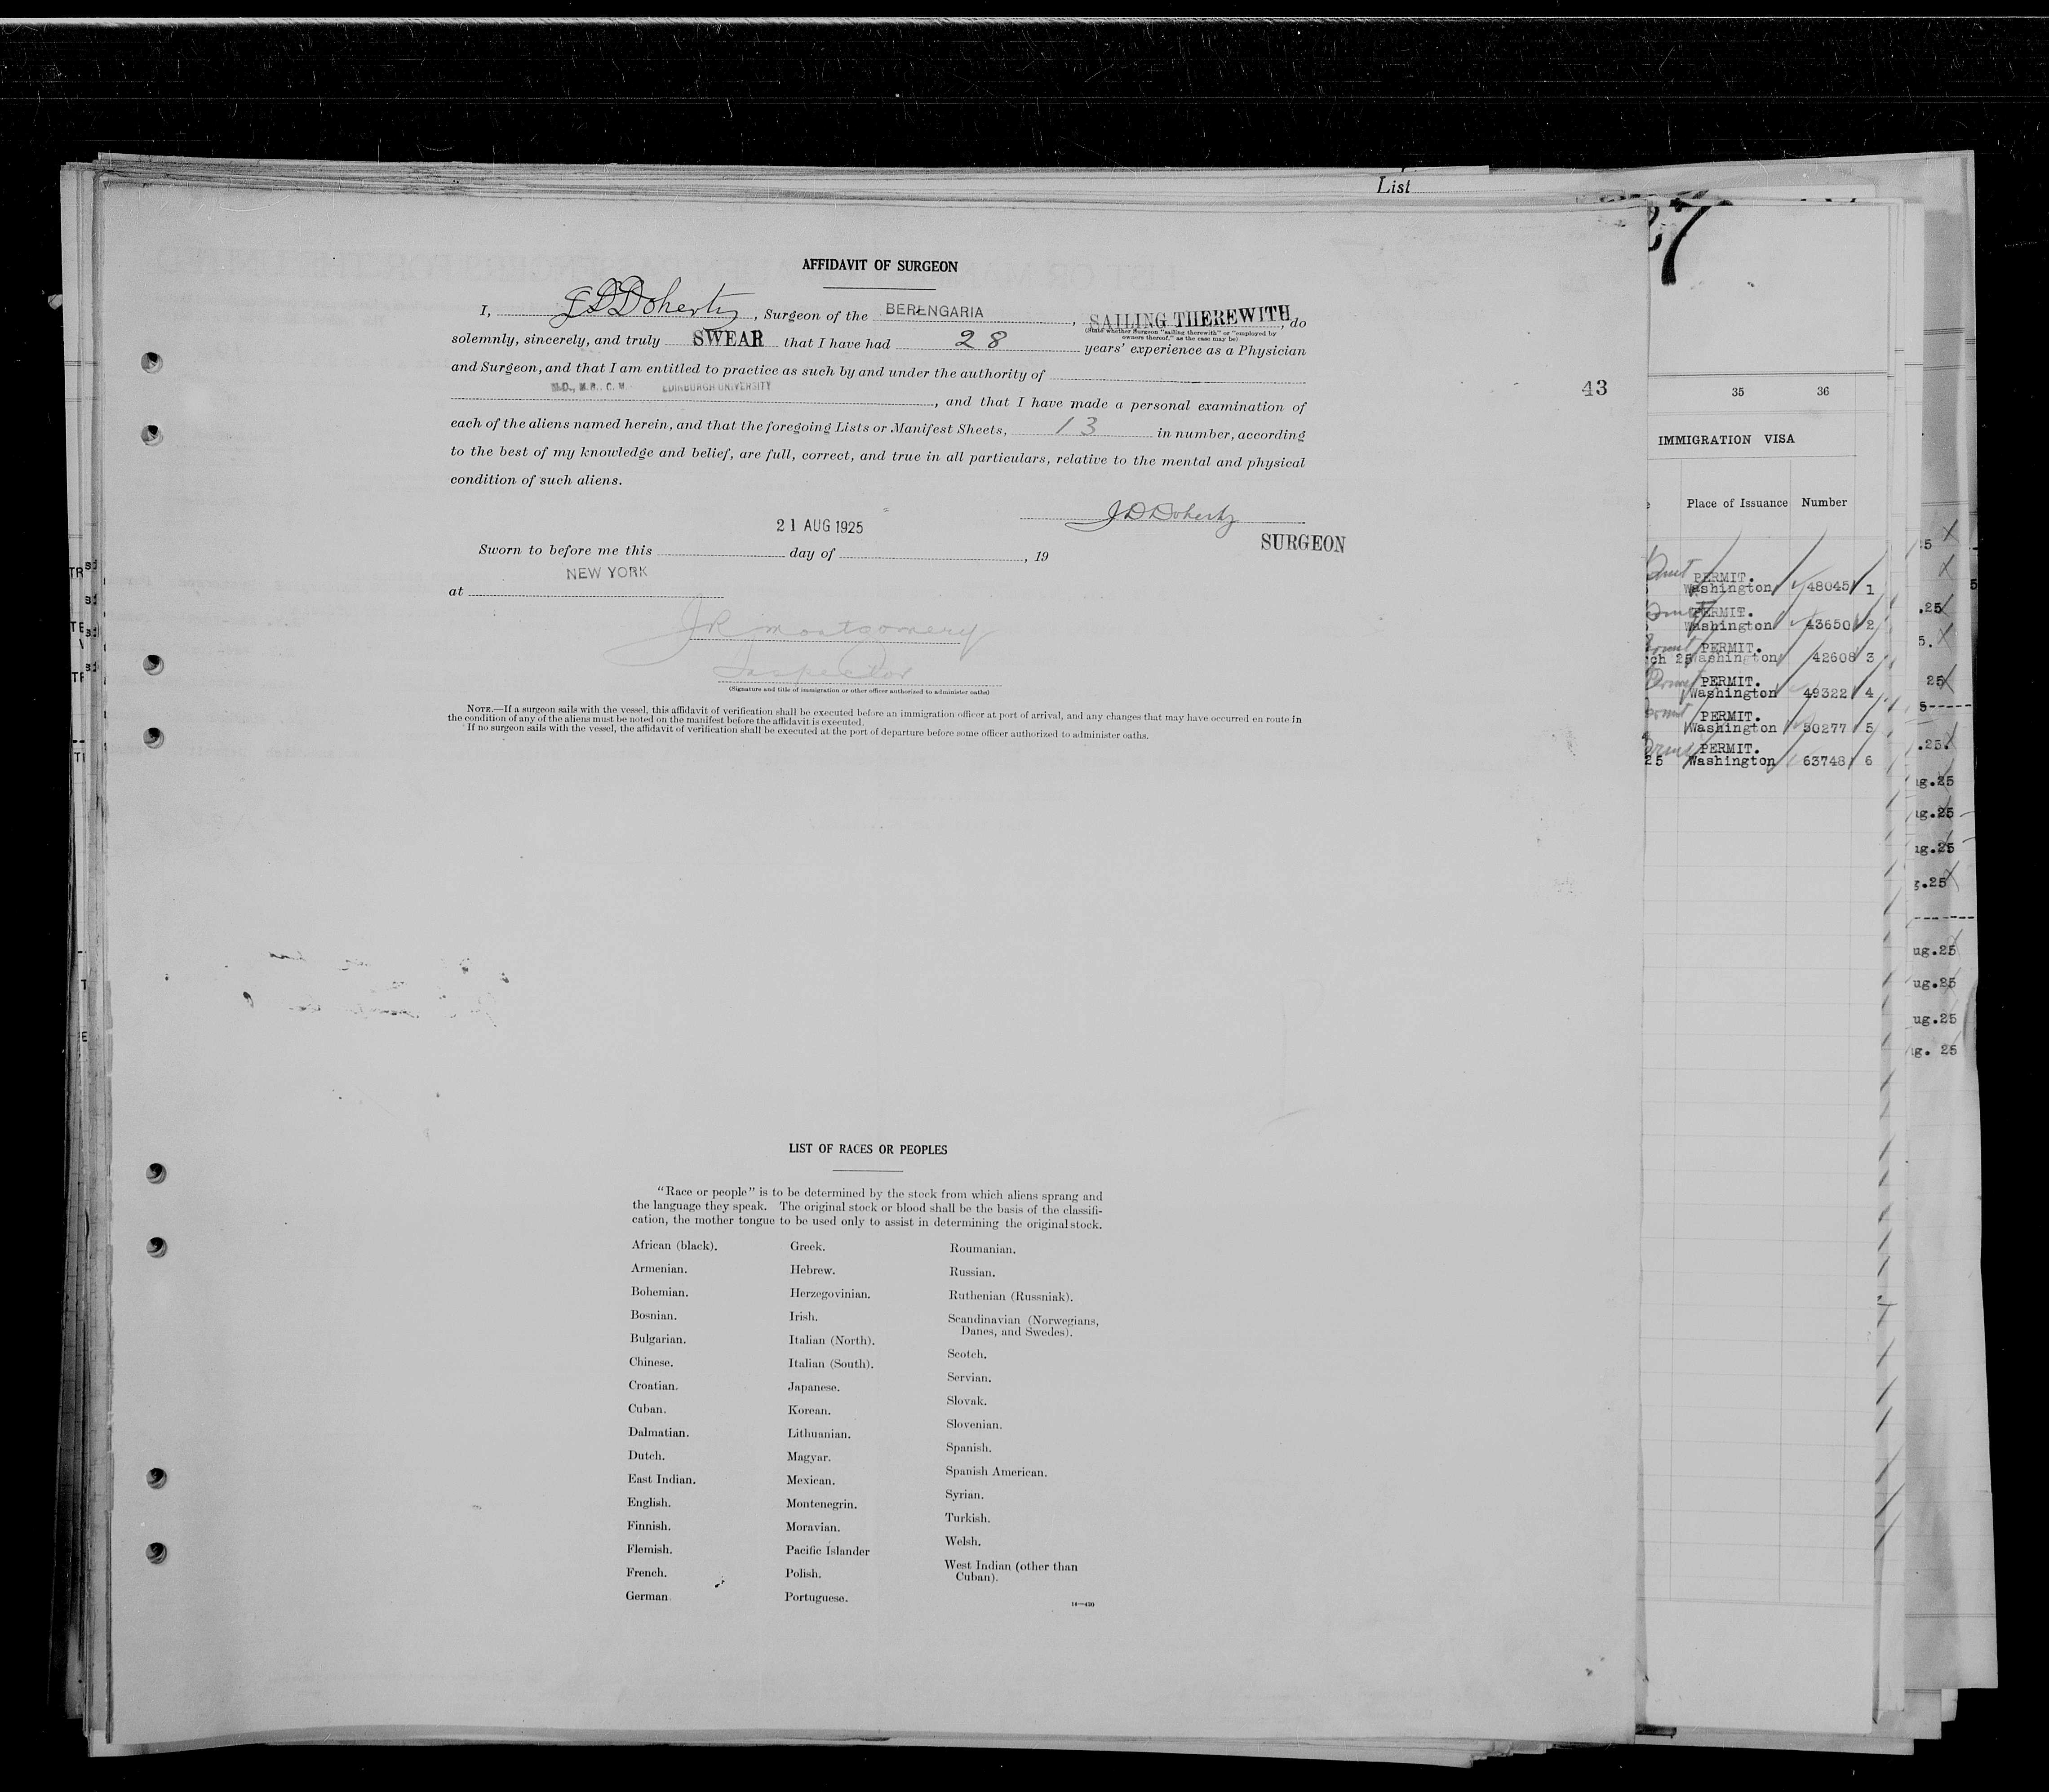 List
27
AFFIDAVIT OF SURGEON
I, J D Doherty, Surgeon of the BERENGARIA, SAILING THEREWITH, do
(State whether Surgeon "sailing therewith" or "employed by
owners thereof," as the case may be)
solemnly, sincerely, and truly SWEAR that I have had 28 years' experience as a Physician
and Surgeon, and that I am entitled to practice as such by and under the authority of
M.D., M.B., C.M. EDINBURGH UNIVERSITY
, and that I have made a personal examination of
each of the aliens named herein, and that the foregoing Lists or Manifest Sheets, 13 in number, according
to the best of my knowledge and belief, are full, correct, and true in all particulars, relative to the mental and physical
condition of such aliens.
J D Doherty
SURGEON
21 AUG 1925
Sworn to before me this day of , 19
NEW YORK
at
J R Montgomery
Inspector
(Signature and title of immigration or other officer authorized to administer oaths)
NOTE.—If a surgeon sails with the vessel, this affidavit of verification shall be executed before an immigration officer at port of arrival, and any changes that may have occurred en route in
the condition of any of the aliens must be noted on the manifest before the affidavit is executed.
If no surgeon sails with the vessel, the affidavit of verification shall be executed at the port of departure before some officer authorized to administer oaths.
43
LIST OF RACES OR PEOPLES
"Race or people" is to be determined by the stock from which aliens sprang and
the language they speak. The original stock or blood shall be the basis of the classifi-
cation, the mother tongue to be used only to assist in determining the original stock.
African (black).
Armenian.
Bohemian.
Bosnian.
Bulgarian.
Chinese.
Croatian.
Cuban.
Dalmatian.
Dutch.
East Indian.
English.
Finnish.
Flemish.
French.
German
Greek.
Hebrew.
Herzegovinian.
Irish.
Italian (North).
Italian (South).
Japanese.
Korean.
Lithuanian.
Magyar.
Mexican.
Montenegrin.
Moravian.
Pacific Islander
Polish.
Portuguese.
Roumanian.
Russian.
Ruthenian (Russniak).
Scandinavian (Norwegians,
Danes, and Swedes).
Scotch.
Servian.
Slovak.
Slovenian.
Spanish.
Spanish American.
Syrian.
Turkish.
Welsh.
West Indian (other than
Cuban).
14—430
35 36
IMMIGRATION VISA
Place of Issuance Number
PERMIT.
Washington 48045 1
PERMIT.
Washington 43650 2
PERMIT.
ch 25 Washington 42608 3
PERMIT.
Washington 49322 4
PERMIT.
Washington 50277 5
PERMIT.
25 Washington 63748 6
.25
5.
25
.25.
ug.25
ug.25
ug.25
g.25
ug.25
ug.25
ug.25
ug. 25